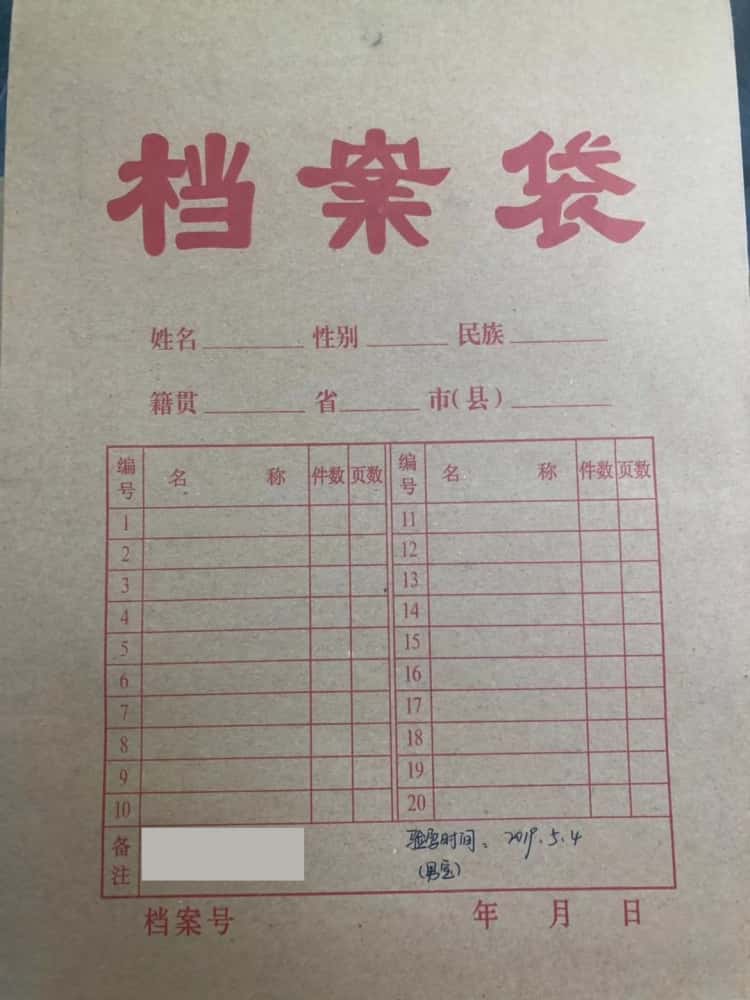 档案袋
姓名 性别 民族
籍贯 省 市(县)
编号 名称 件数 页数 编号 名称 件数 页数
1 11
2 12
3 13
4 14
5 15
6 16
7 17
8 18
9 19
10 20
备注 验窖时间：2019.5.4
(男宝)
档案号 年 月 日